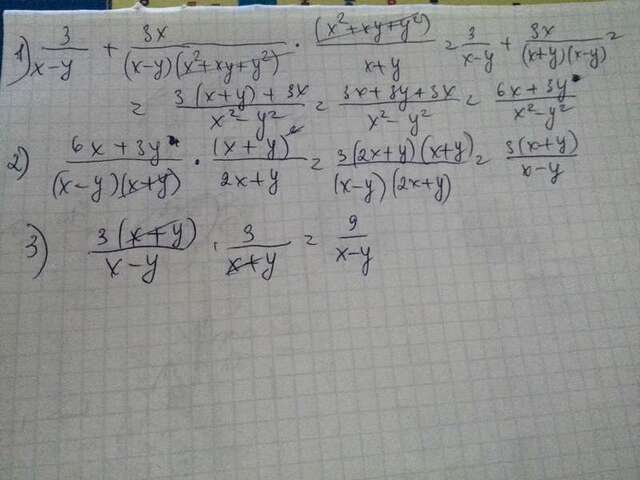 1) 3/(x-y) + 3x/((x-y)(x²+xy+y²)) · (x²+xy+y²)/(x+y) = 3/(x-y) + 3x/((x+y)(x-y)) =
= (3(x+y)+3x)/(x²-y²) = (3x+3y+3x)/(x²-y²) = (6x+3y)/(x²-y²)
2) (6x+3y)/((x-y)(x+y)) · (x+y)/(2x+y) = (3(2x+y)(x+y))/((x-y)(2x+y)) = 3(x+y)/(x-y)
3) 3(x+y)/(x-y) · 3/(x+y) = 9/(x-y)